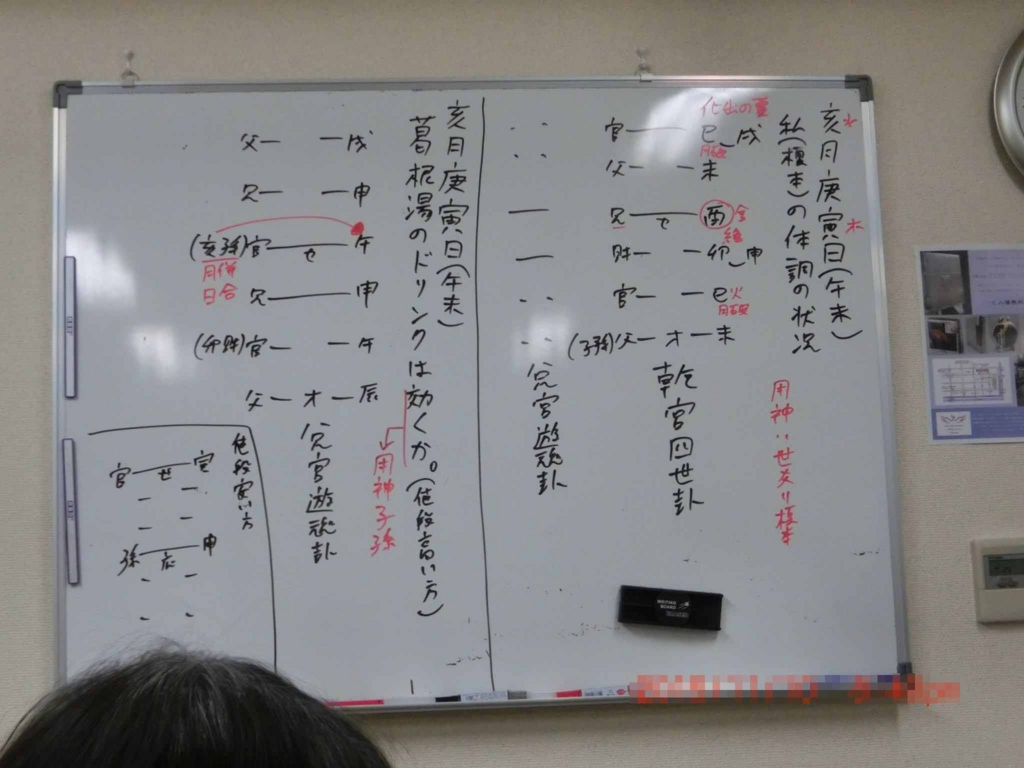 亥月庚寅日(午未)
水
木
私(榎本)の体調の状況
用神は世爻
榎本
化出の
官 巳 戌
月破
父 未
兄 世 酉 金
絶
財 卯 申
官 巳 火
月破
(子孫)父 才 未
乾宮四世卦
兌宮遊魂卦
亥月庚寅日(午未)
葛根湯のドリンクは効くか。(値段高い方)
用神子孫
父 戌
兄 申
(亥孫)官 世 午
月併
日合
兄 申
(卯財)官 午
父 才 辰
兌宮遊魂卦
値段安い方
官 世
孫 応 申
WRITING BOARD